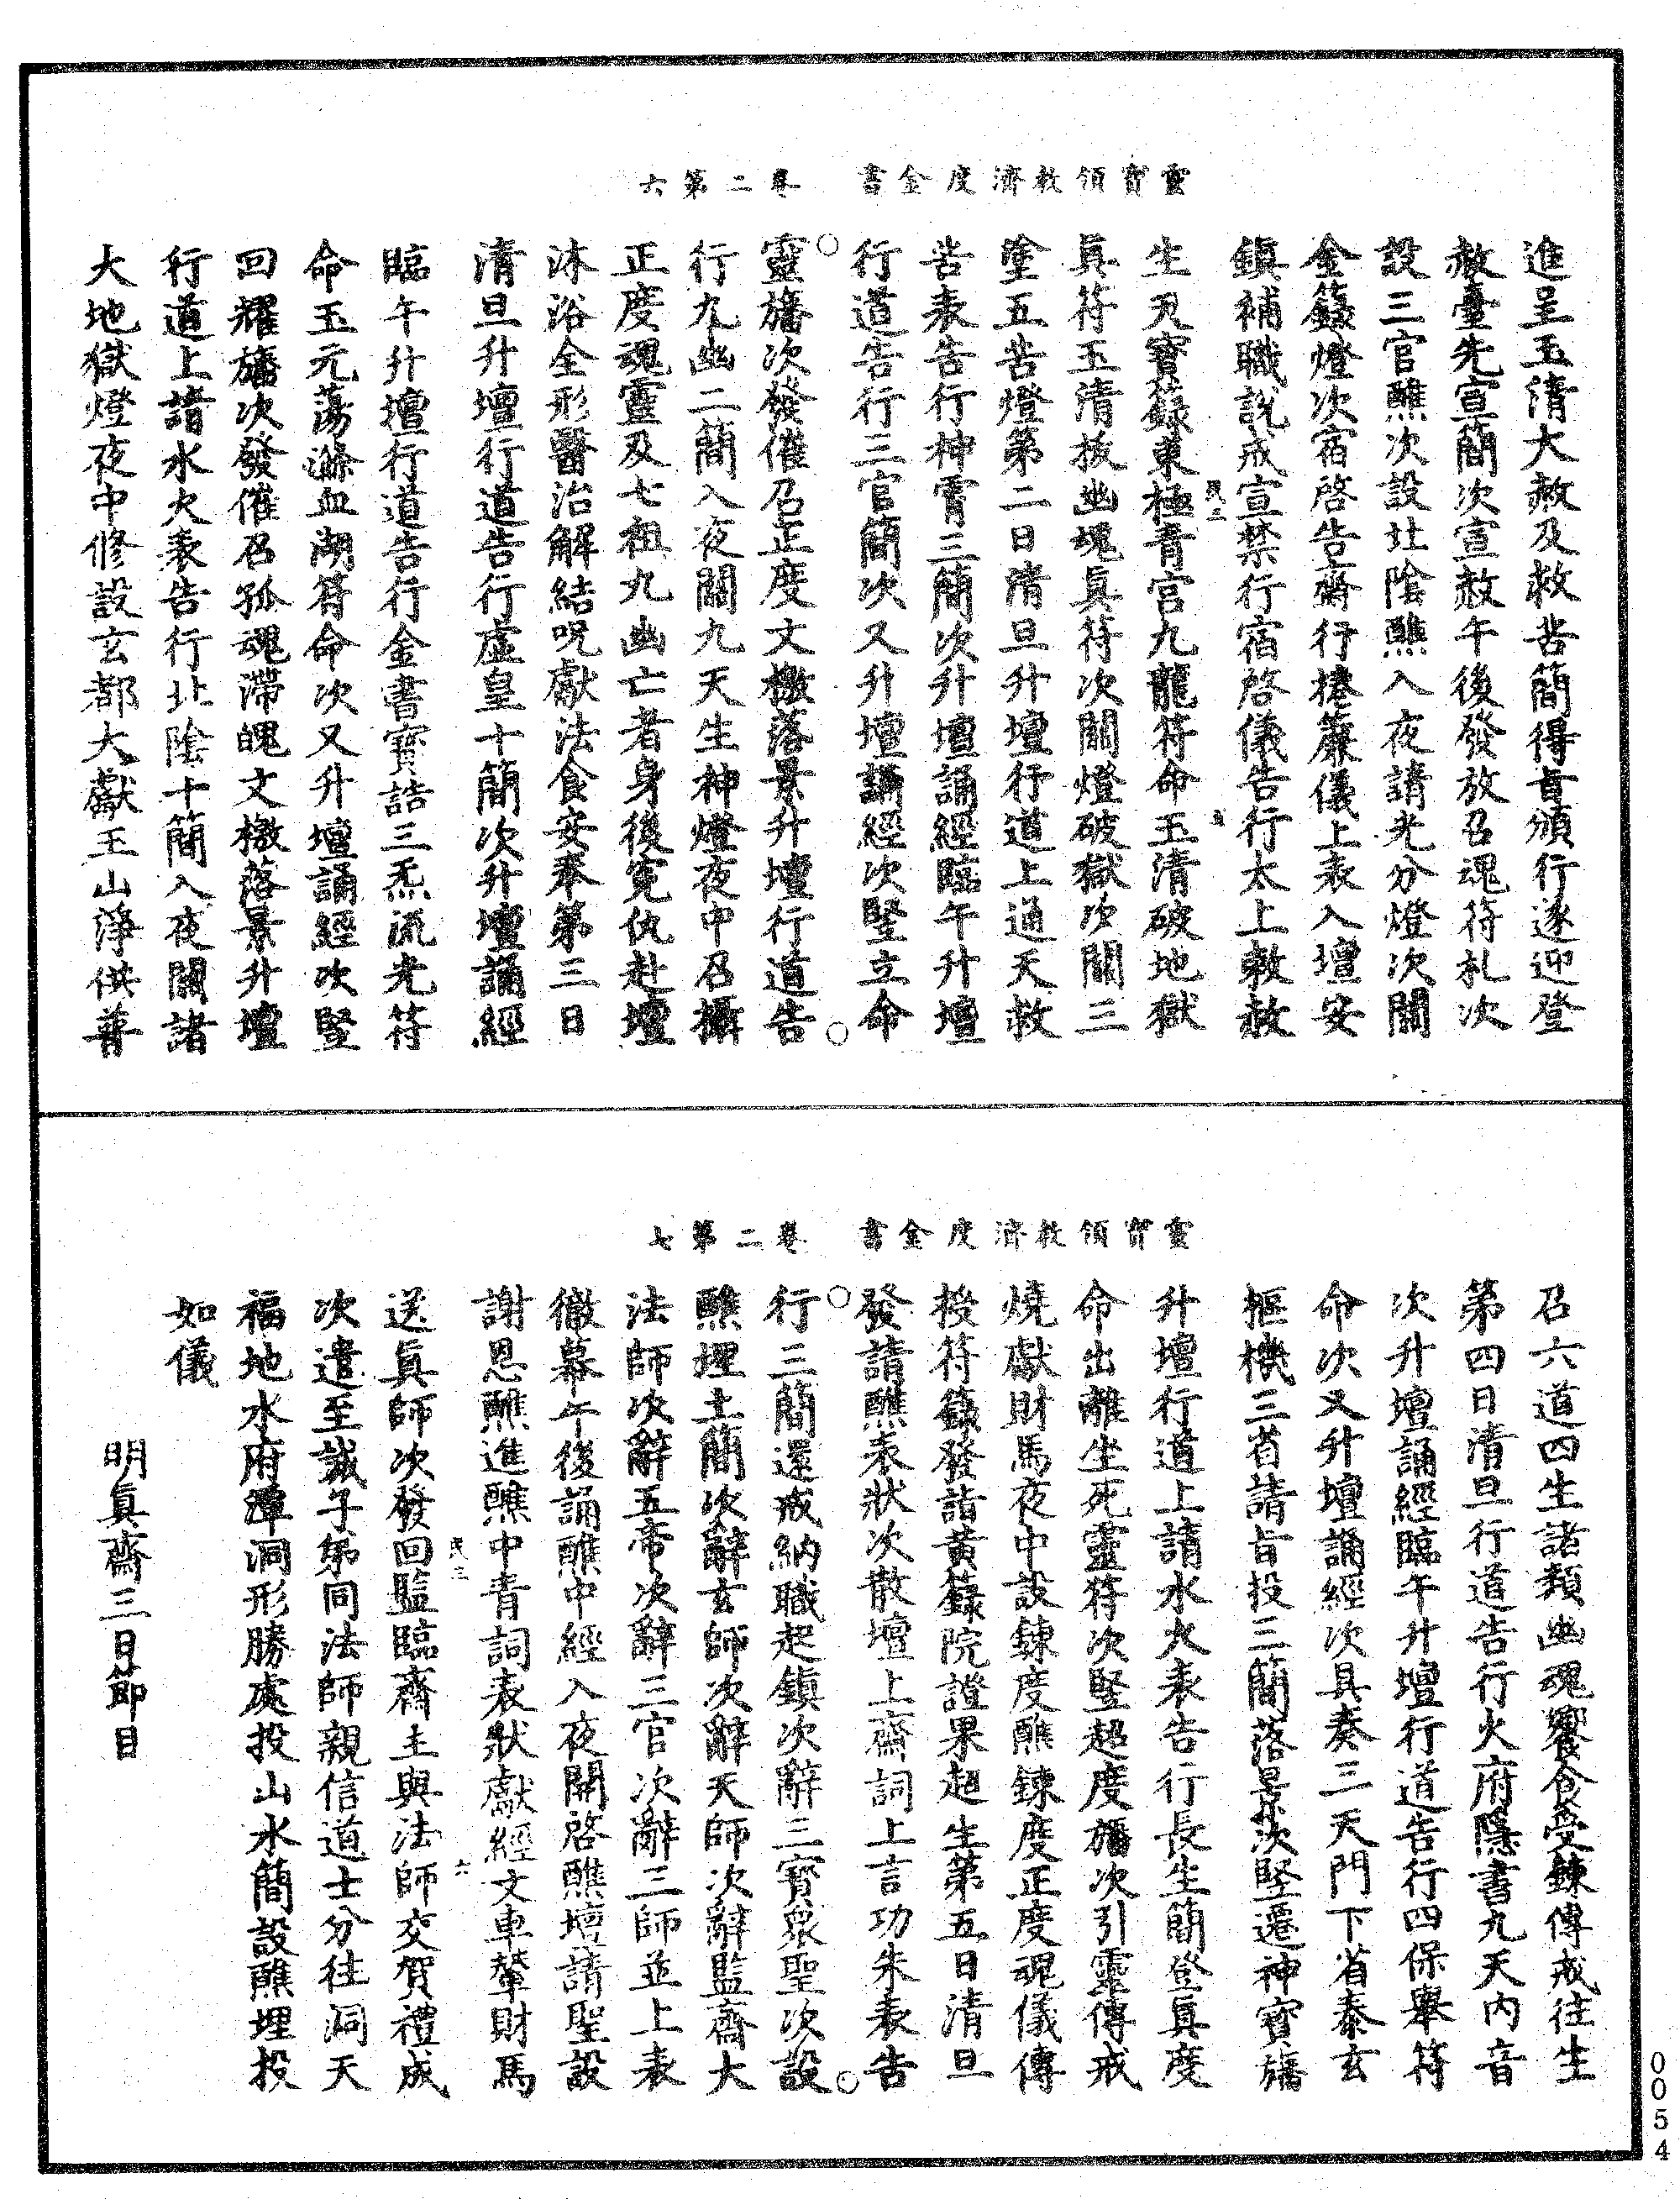 靈寶領教濟度金書　卷二第六
進呈玉清大赦及救苦簡得旨頒行遂迎登
赦臺先宣簡次宣赦午後發放召魂符札次
設三官醮次設北陰醮入夜請光分燈次關
金籙燈次宿啓告齋行捲簾儀上表入壇安
鎮補職說戒宣禁行宿啓儀告行太上敕赦
生天寶籙東極青宮九龍符命玉清破地獄
眞符玉清拔幽魂眞符次關燈破獄次關三
塗五苦燈第二日清旦升壇行道上通天救
苦表告行神霄三簡次升壇誦經臨午升壇
行道告行三官簡次又升壇誦經次豎立命
靈旛次發催召正度文檄落景升壇行道告
行九幽二簡入夜關九天生神燈夜中召攝
正度魂靈及七祖九幽亡者身後寃仇赴壇
沐浴全形醫治解結呪獻法食安奉第三日
清旦升壇行道告行虛皇十簡次升壇誦經
臨午升壇行道告行金書寶誥三炁流光符
命玉元蕩滌血湖符命次又升壇誦經次豎
回耀旛次發催召孤魂滯魄文檄落景升壇
行道上請水火表告行北陰十簡入夜關諸
大地獄燈夜中修設玄都大獻玉山淨供普
靈寶領教濟度金書　卷二第七
召六道四生諸類幽魂饗食受鍊傳戒往生
第四日清旦行道告行火府隱書九天內音
次升壇誦經臨午升壇行道告行四保舉符
命次又升壇誦經次具奏三天門下省泰玄
樞機三省請旨投三簡落景次豎遷神寶旛
升壇行道上請水火表告行長生簡登眞度
命出離生死靈符次豎超度旛次引靈傳戒
燒獻財馬夜中設鍊度醮鍊度正度魂儀傳
授符籙發詣黃籙院證果超生第五日清旦
發請醮表狀次散壇上齋詞上言功朱表告
行三簡還戒納職起鎮次辭三寶衆聖次設
醮埋土簡次辭玄師次辭天師次辭監齋大
法師次辭五帝次辭三官次辭三師並上表
徹幕午後誦醮中經入夜開啓醮壇請聖設
謝恩醮進醮中青詞表狀獻經文車輦財馬
送眞師次發回監臨齋主與法師交賀禮成
次遣至誠子弟同法師親信道士分往洞天
福地水府潭洞形勝處投山水簡設醮埋投
如儀
明眞齋三日節目
0054